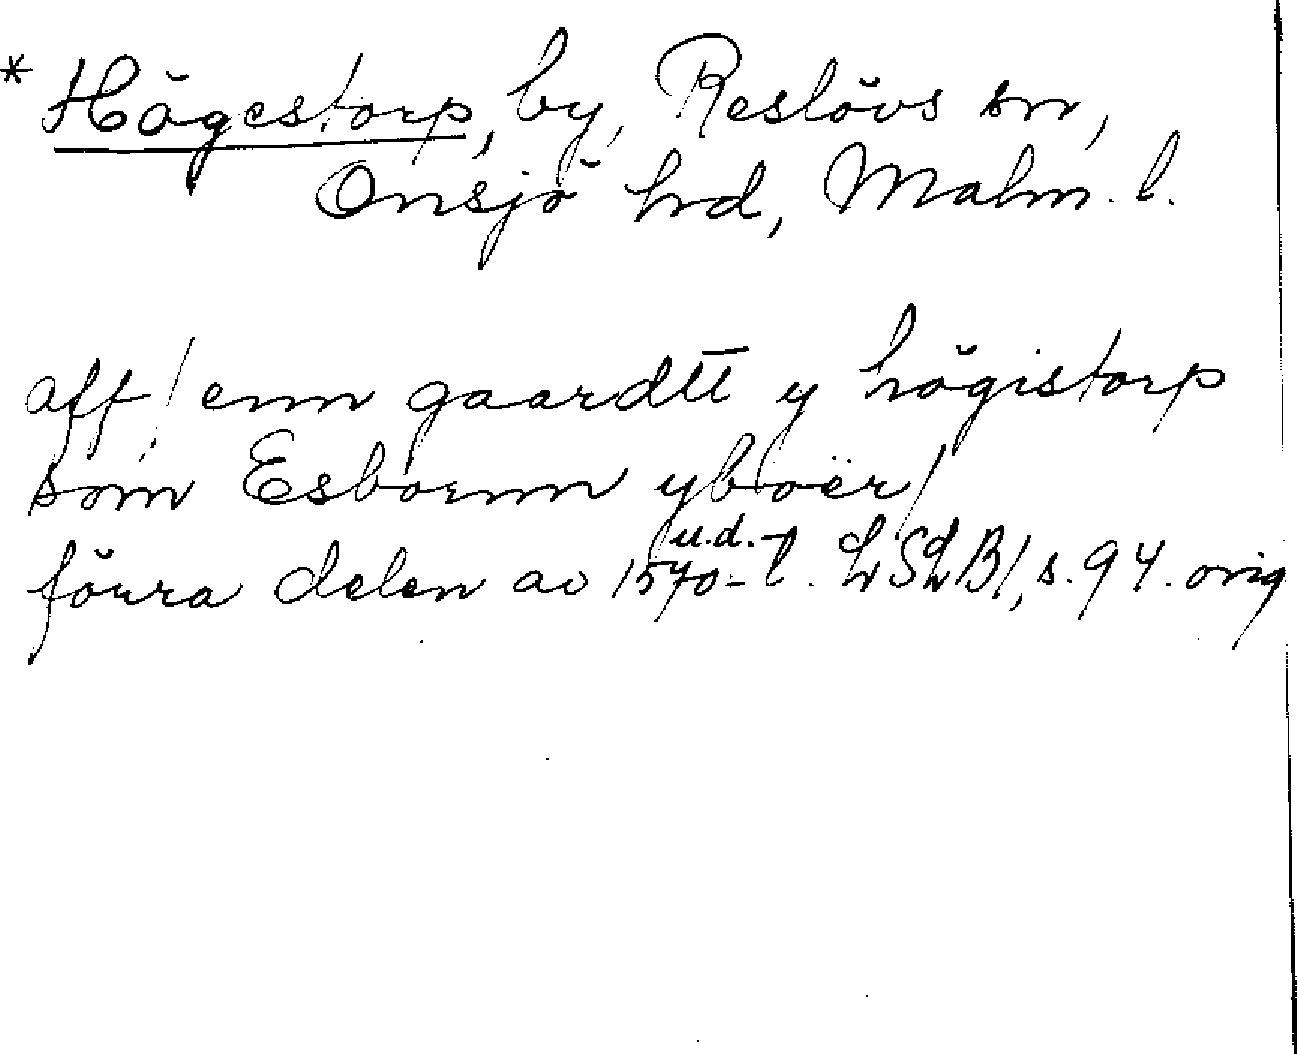 * Högestorp, by, Reslövs sn,
Onsjö hrd, Malm. l.
aff / enn gaardtt y högistorp
som Esbörnn yboer /
förra delen av 1570-t. u.d. LSLB1, s. 94. orig